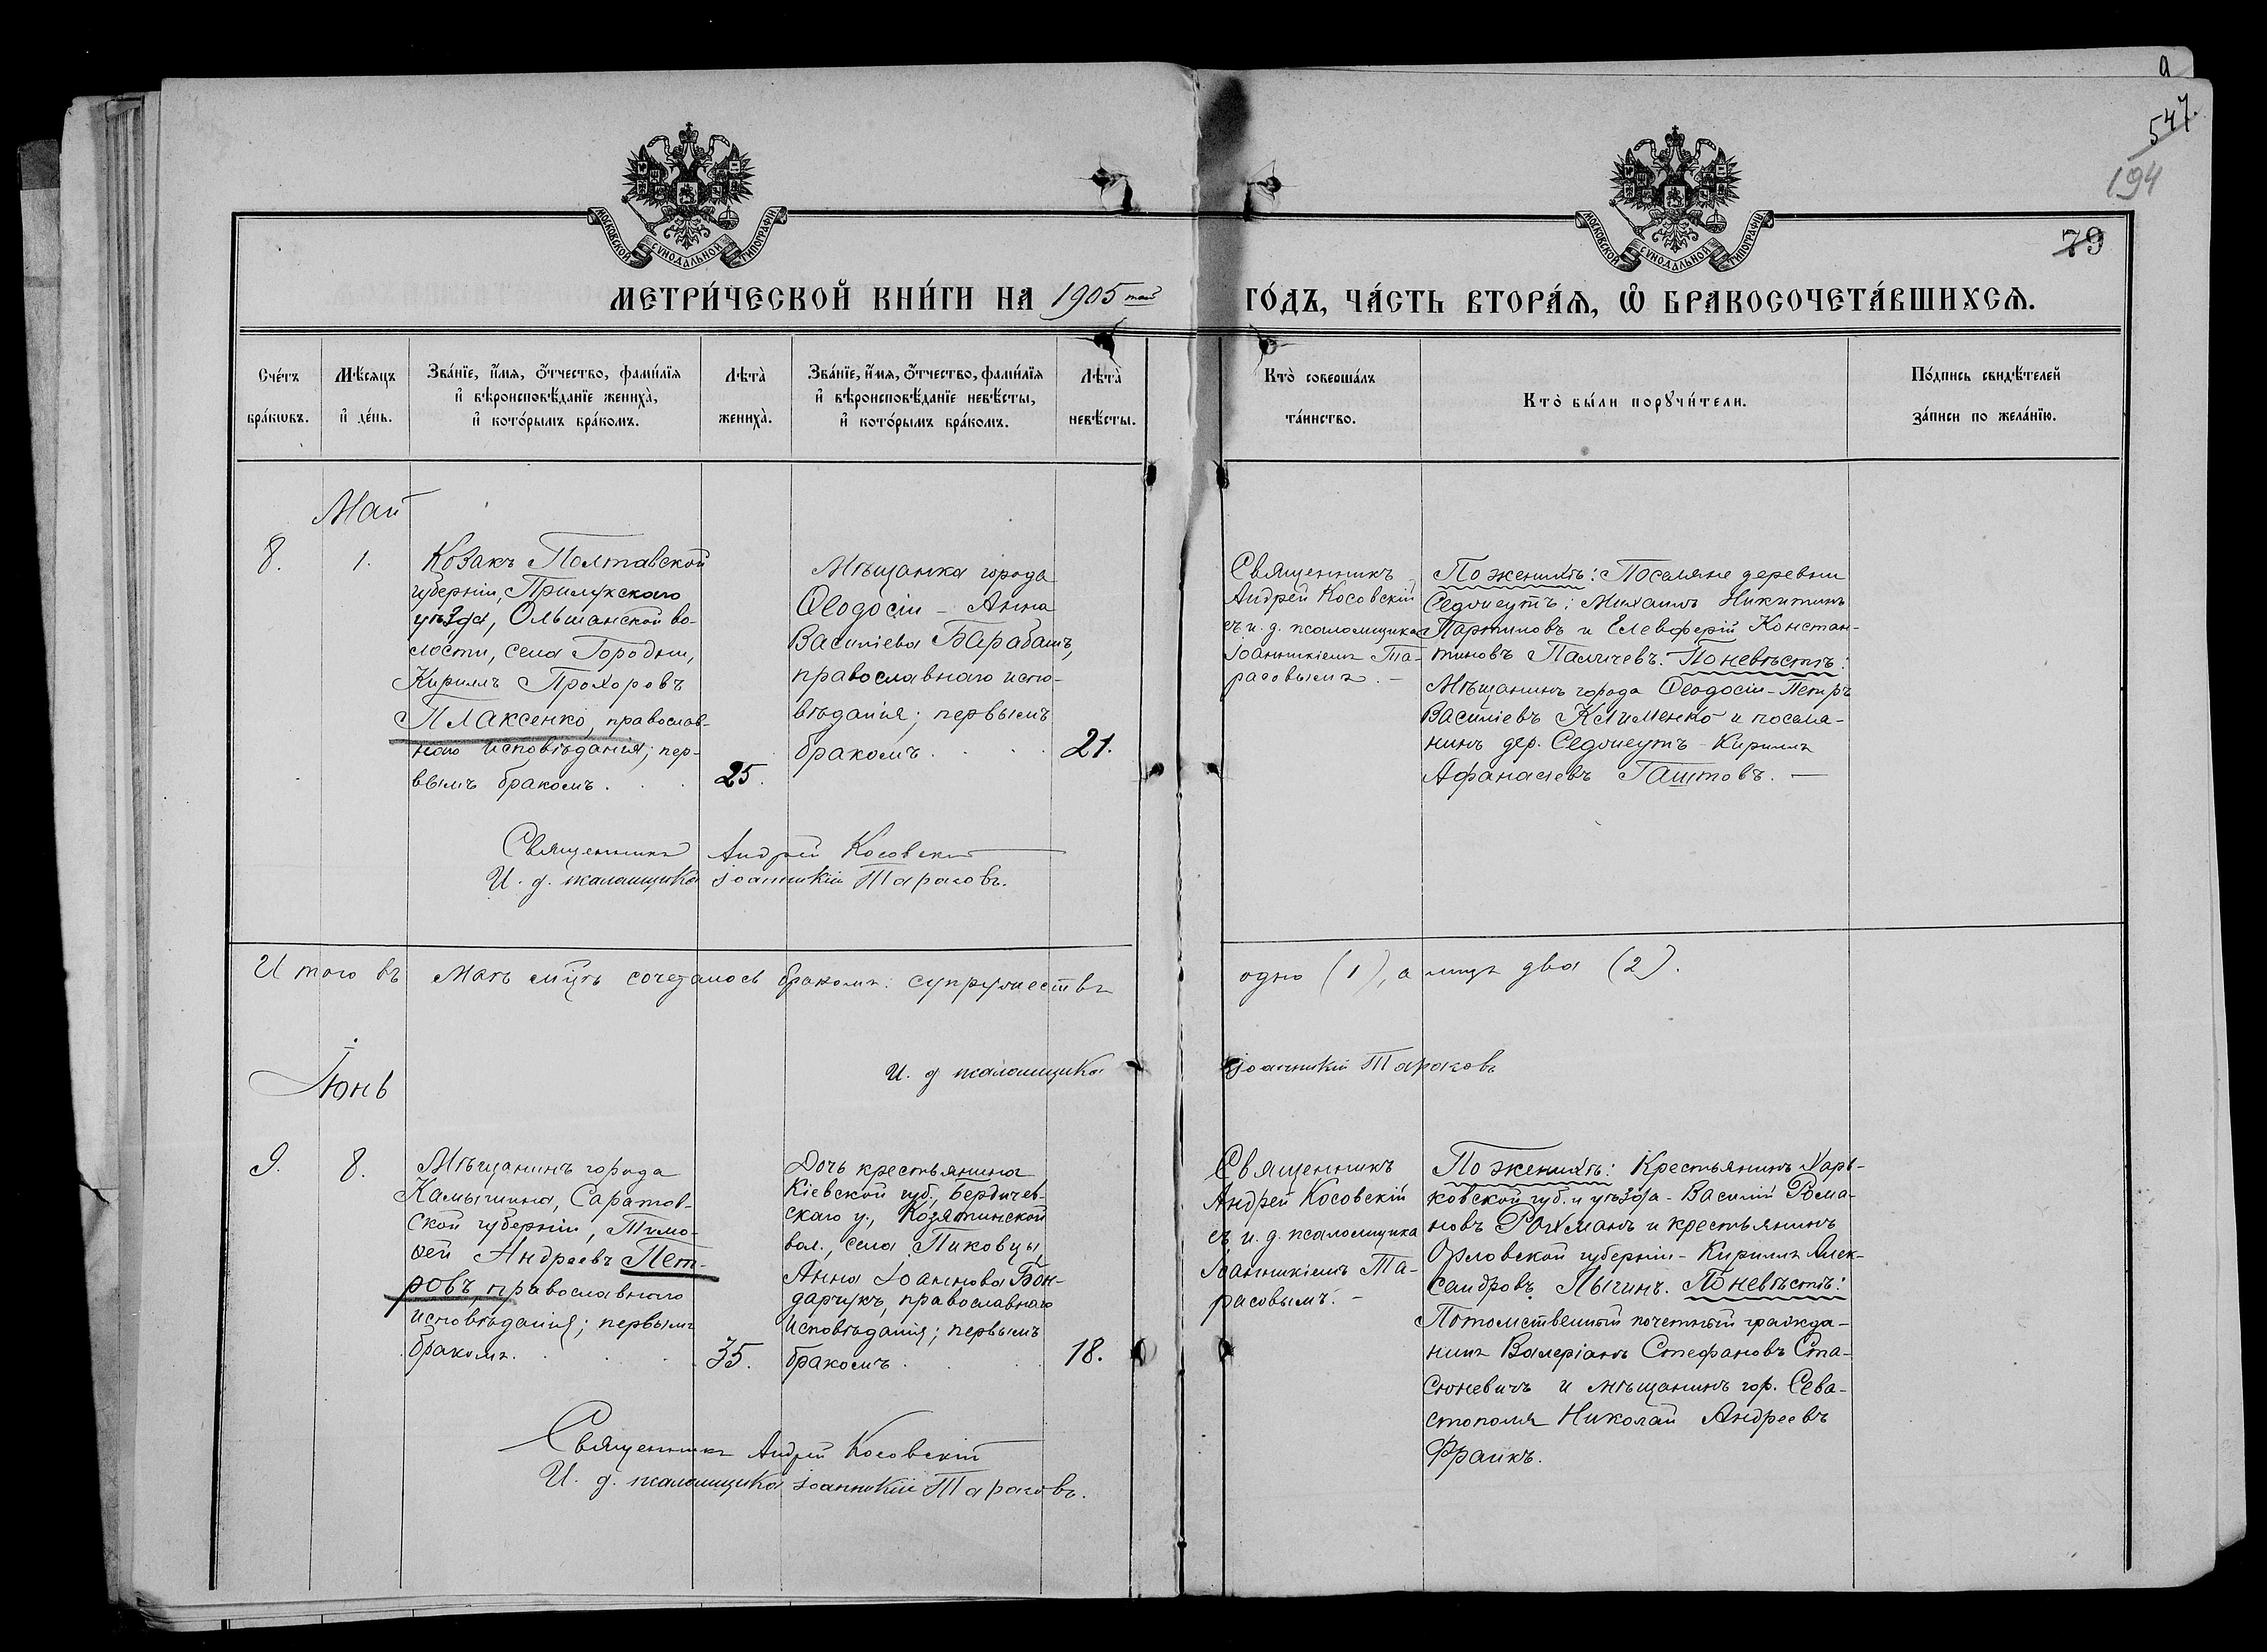 547.
194
79
МОСКОВСКОЙ СѴНОДАЛЬНОЙ ТИПОГРАФІИ
МОСКОВСКОЙ СѴНОДАЛЬНОЙ ТИПОГРАФІИ
МЕТРИ́ЧЕСКОЙ КНИ́ГИ НА 1905 годъ, ЧА́СТЬ ВТОРА́Я, Ѽ БРАКОСОЧЕТА́ВШИХСЯ.
Сче́тъ
бра́кѡвъ.
Мѣ́сяцъ
и҆ де́нь.
Зва́нїе, и҆́мя, ѻ҆́тчество, фами́лїя
и҆ вѣроисповѣ́данїе жениха̀,
и҆ кото́рымъ бра́комъ.
Лѣта̀
жениха̀.
Зва́нїе, и҆́мя, ѻ҆́тчество, фами́лїя
и҆ вѣроисповѣ́данїе невѣ́сты,
и҆ кото́рымъ бра́комъ.
Лѣта̀
невѣ́сты.
Кто̀ соверша́лъ
та́инство.
Кто̀ бы́ли порꙋчи́тели.
По́дпись свидѣ́телей
за́писи по жела́нїю.
Май
8.
1.
Козакъ Полтавской
губерніи, Прилукскаго
уѣзда, Ольшанской во-
лости, села Городни,
Кириллъ Прохоровъ
Плаксенко, православ-
наго исповѣданія; пер-
вымъ бракомъ.
25.
Мѣщанка города
Ѳеодосіи - Анна
Василіева Барабашъ,
православнаго испо-
вѣданія; первымъ
бракомъ.
21.
Священникъ
Андрей Косовскій
съ и. д. псаломщика
Іоанникіемъ Та-
расовымъ. -
По женихѣ: Поселяне деревни
Седжеутъ: Михаилъ Никитинъ
Партиловъ и Елевферій Констан-
тиновъ Паличевъ. По невѣстѣ:
Мѣщанинъ города Ѳеодосіи - Петръ
Василіевъ Клименко и поселя-
нинъ дер. Седжеутъ - Кириллъ
Афанасіевъ Гаштовъ. -
Священникъ Андрей Косовскій
И. д. псаломщика Іоанникій Тарасовъ.
Итого въ Маѣ мцѣ сочеталось бракомъ: супружествъ одно (1), а лицъ два (2).
И. д. псаломщика Іоанникій Тарасовъ
Іюнь
9.
8.
Мѣщанинъ города
Камышина, Саратов-
ской губерніи, Тимо-
ѳей Андреевъ Пет-
ровъ, православнаго
исповѣданія; первымъ
бракомъ.
35.
Дочь крестьянина
Кіевской губ., Бердичев-
скаго у., Козятинской
вол., села Пиковцы,
Анна Іоаннова Бон-
дарчукъ, православнаго
исповѣданія; первымъ
бракомъ
18.
Священникъ
Андрей Косовскій
съ и. д. псаломщика
Іоанникіемъ Та-
расовымъ. -
По женихѣ: Крестьянинъ Харь-
ковской губ. и уѣзда - Василій Рома-
новъ Рохманъ и крестьянинъ
Орловской губерніи - Кириллъ Алек-
сандровъ Лыгинъ. По невѣстѣ:
Потомственный почетный гражда-
нинъ Валеріанъ Стефановъ Ста-
сюневичъ и мѣщанинъ гор. Сева-
стополя Николай Андреевъ
Франкъ.
Священникъ Андрей Косовскій
И. д. псаломщика Іоанникій Тарасовъ.